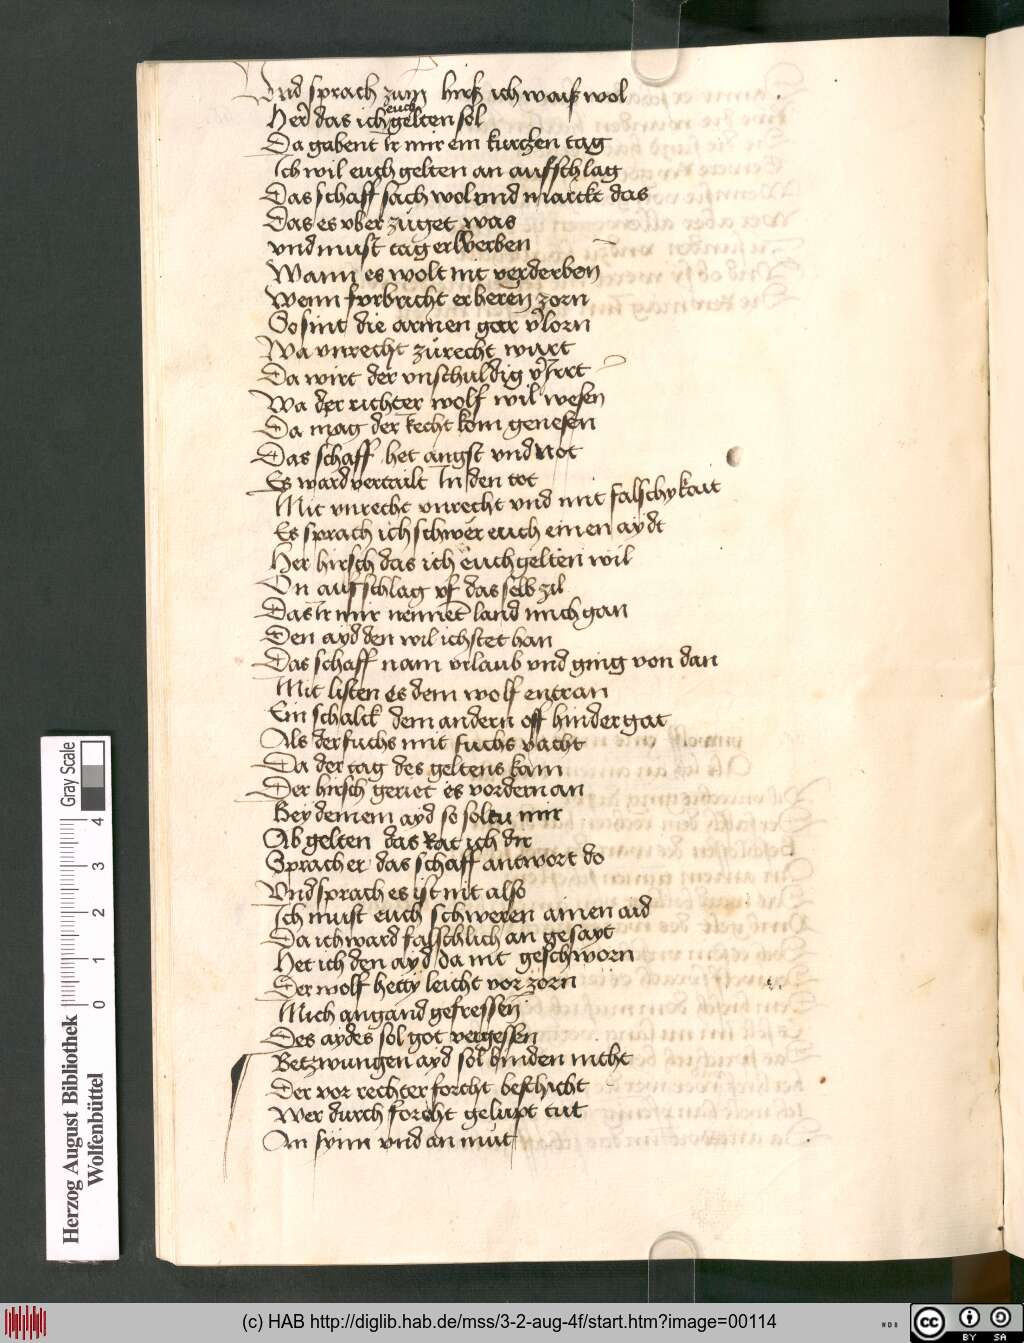 Vnd sprach zum hirß ich waiß wol
Her das ich euch gelten sol
Da gabent ir mir ein kurczen tag
Ich wil euch gelten an aufschlag
Das schaff sach wol vnd marckt das
Das es vber zuget was
vnd must tag erwerben
Wann es wolt nit verderben
Wenn furbricht er heren zorn
So sint die armen gar v̾lorn
Wa vnrecht zu recht wurt
Da wirt der vnschuldig v̾Irrt
Wa der richter wolf wil wesen
Da mag der recht kom genesen
Das schaff het angst vnd not
Es ward vertailt In den tot
Mit vnrecht vnrecht vnd mit falschykait
Es sprach ich schwer euch einen aydt
Her hirsch das ich euch gelten wil
On aufschlag vf das selb zil
Das ir mir nennet land mich gan
Den ayd den wil ich stet han
Das schaff nam vrlaub vnd ging von dan
Mit listen es dem wolf entran
Ein schalck dem andern off hinder gat
Als der fuchs mit fuchs vacht
Da der tag des geltens kam
Der hirsch geriet es vordern an
Bey deinem ayd so soltu mir
Ab gelten das Rat ich dir
Sprach er das schaff antwort do
Vnd sprach es ist nit also
Ich must euch schweren ainen aid
Da ich ward falschlich an gesayt
Het ich den ayd da nit geschworn
Der wolf hetty leicht vor zorn
Mich angand gefressen
Des aydes sol got vergessen
Betzwungen ayd sol binden nicht
Der vor rechter forcht beschicht
Wer durch forcht gelupt tut
An synn vnd an mut
Herzog August Bibliothek
Wolfenbüttel
0 1 2 3 4
Gray Scale
(c) HAB http://diglib.hab.de/mss/3-2-aug-4f/start.htm?image=00114
WDB
cc BY SA